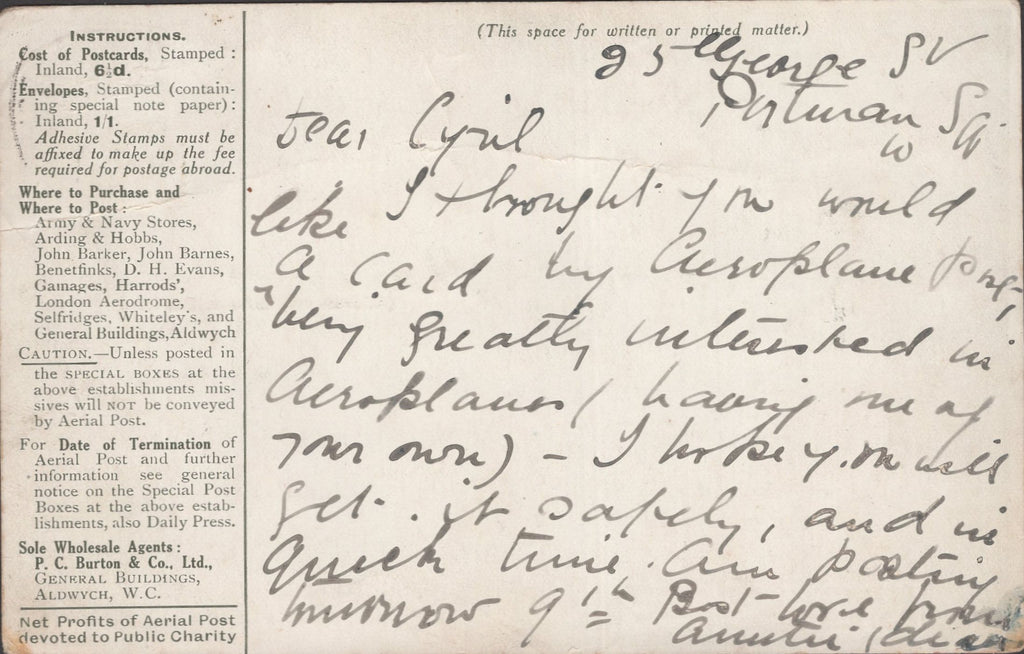 INSTRUCTIONS.
Cost of Postcards, Stamped :
Inland, 6½d.
Envelopes, Stamped (contain-
ing special note paper) :
Inland, 1/1.
Adhesive Stamps must be
affixed to make up the fee
required for postage abroad.
Where to Purchase and
Where to Post :
Army & Navy Stores,
Arding & Hobbs,
John Barker, John Barnes,
Benetfinks, D. H. Evans,
Gamages, Harrods',
London Aerodrome,
Selfridges, Whiteley's, and
General Buildings, Aldwych
CAUTION.—Unless posted in
the SPECIAL BOXES at the
above establishments mis-
sives will NOT be conveyed
by Aerial Post.
For Date of Termination of
Aerial Post and further
information see general
notice on the Special Post
Boxes at the above estab-
lishments, also Daily Press.
Sole Wholesale Agents :
P. C. Burton & Co., Ltd.,
GENERAL BUILDINGS,
ALDWYCH, W.C.
Net Profits of Aerial Post
devoted to Public Charity
(This space for written or printed matter.)
25 George St
Portman Sq.
W
Dear Cyril
I thought you would
like
a card by Aeroplane Post,
being greatly interested in
Aeroplanes (having one of
your own) - I hope you will
get it safely, and in
quick time. Am posting
tomorrow 9th Best love from
Auntie